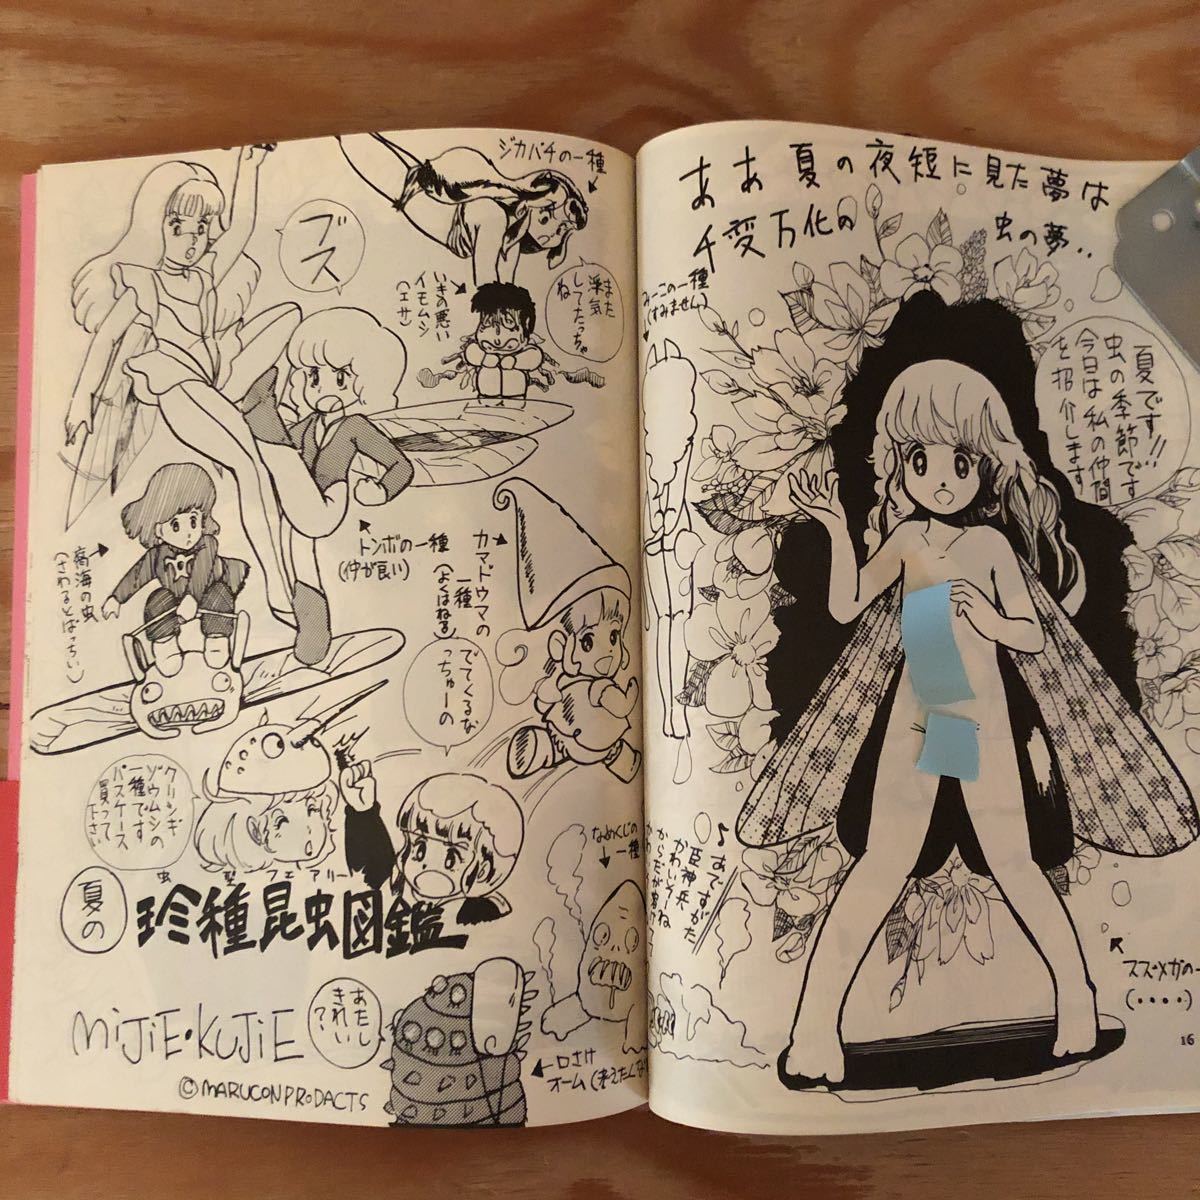 ああ 夏の夜短に見た夢は
千変万化の 虫の夢‥
夏です!!
虫の季節です
今日は私の仲間
を招介します
みつこの一種
(すみません)
♪あですがた
巨神兵
かわいそーね
スズメガの一
(・・・・)
16
ジカバチの一種
また
浮気
してたっちゃ
ね
ブス
いきの悪い
イモムシ
(エサ)
トンボの一種
(仲が良い)
カマドウマの
一種
(よくはねる)
腐海の虫
(さわるとばっちい)
でてくるな
っちゅーの
クリシギ
ゾウムシの
一種です
パスケース
買って
下さい
虫型フェアリー
なめくじの
一種
夏の
珍種昆虫図鑑
MiJiE・KUJiE
あたし
きれい
?
←口さけ
オーム
©MARUCONPRODACTS